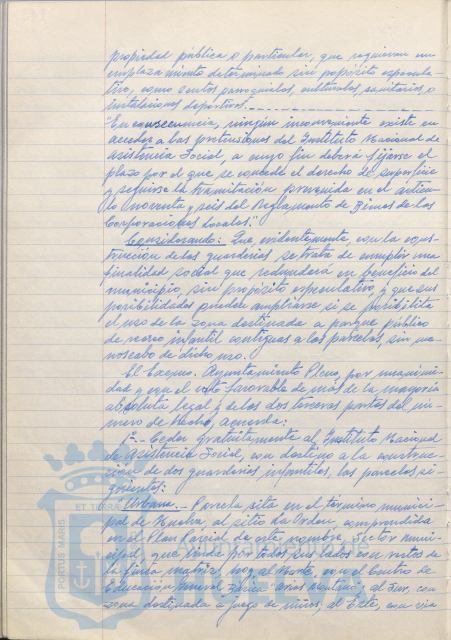 propiedad pública o particular, que requieran un
emplazamiento determinado sin propósito especula-
tivo, como centros parroquiales, culturales, sanitarios o
instalaciones deportivas.
"En consecuencia, ningún inconveniente existe en
acceder a las pretensiones del Instituto Nacional de
Asistencia Social, a cuyo fin deberá fijarse el
plazo por el que se concede el derecho de superficie
y seguirse la tramitación prevenida en el artícu-
lo noventa y seis del Reglamento de Bienes de las
Corporaciones Locales."
Considerando: Que evidentemente, con la cons-
trucción de las guarderías se trata de cumplir una
finalidad social que redundará en beneficio del
municipio, sin propósito especulativo, y que sus
posibilidades pueden ampliarse si se posibilita
el uso de la zona destinada a parque público
de recreo infantil contiguas a las parcelas, sin me-
noscabo de dicho uso.
El Excmo. Ayuntamiento Pleno, por unanimi-
dad, y con el voto favorable de más de la mayoría
absoluta legal y de los dos terceras partes del nú-
mero de hecho, acuerda:
1º.- Ceder gratuitamente al Instituto Nacional
de Asistencia Social, con destino a la construc-
ción de dos guarderías infantiles, las parcelas si-
guientes:
"Urbana.- Parcela sita en el término munici-
pal de Huelva, al sitio La Orden, comprendida
en el Plan Parcial de este nombre, Sector Muni-
cipal, que linda por todos sus lados con restos de
la finca matriz, hoy al Norte, con el Centro de
Educación Arias Montano; al Sur, con
zona destinada a juego de niños; al Este, con vía
PORTUS MARIS
ET TERRAE
HUELVA